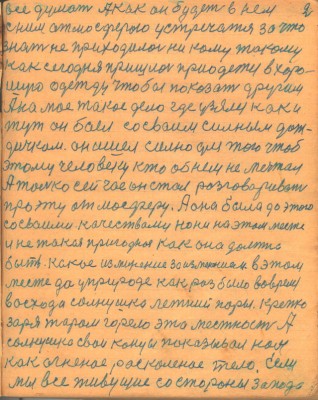 все думают А как он будет в нем
с ним атмосферою устречатся за что
знат не приходилос ни кому такому
как сегодня пришлос приодети в хоро-
шую одежду чтобы показат другим
А на мое такое дело где узяли как и
тут он был со своим сильным дож-
дичком. он шел силно для того чтоб
этому человеку кто об нем не мечтал
А только сейчас он стал розговариват
про эту атмосферу. А она была до этого
со своими качествами но ни на этом месте
и не такая пригодная как она должно
быть какое измерение за измением в этом
месте да у природе как раз было во время
восхода солнушка летний поры. крепко
заря жаром горело это местност А
солнушко свои концы показывал нам
как огненое расколеное тело. Если
мы все живущие со стороны запада